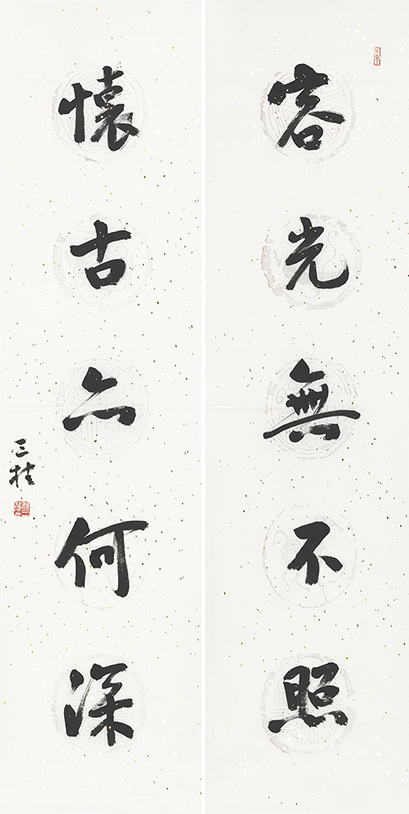 容光無不照
懷古亦何深
三桂